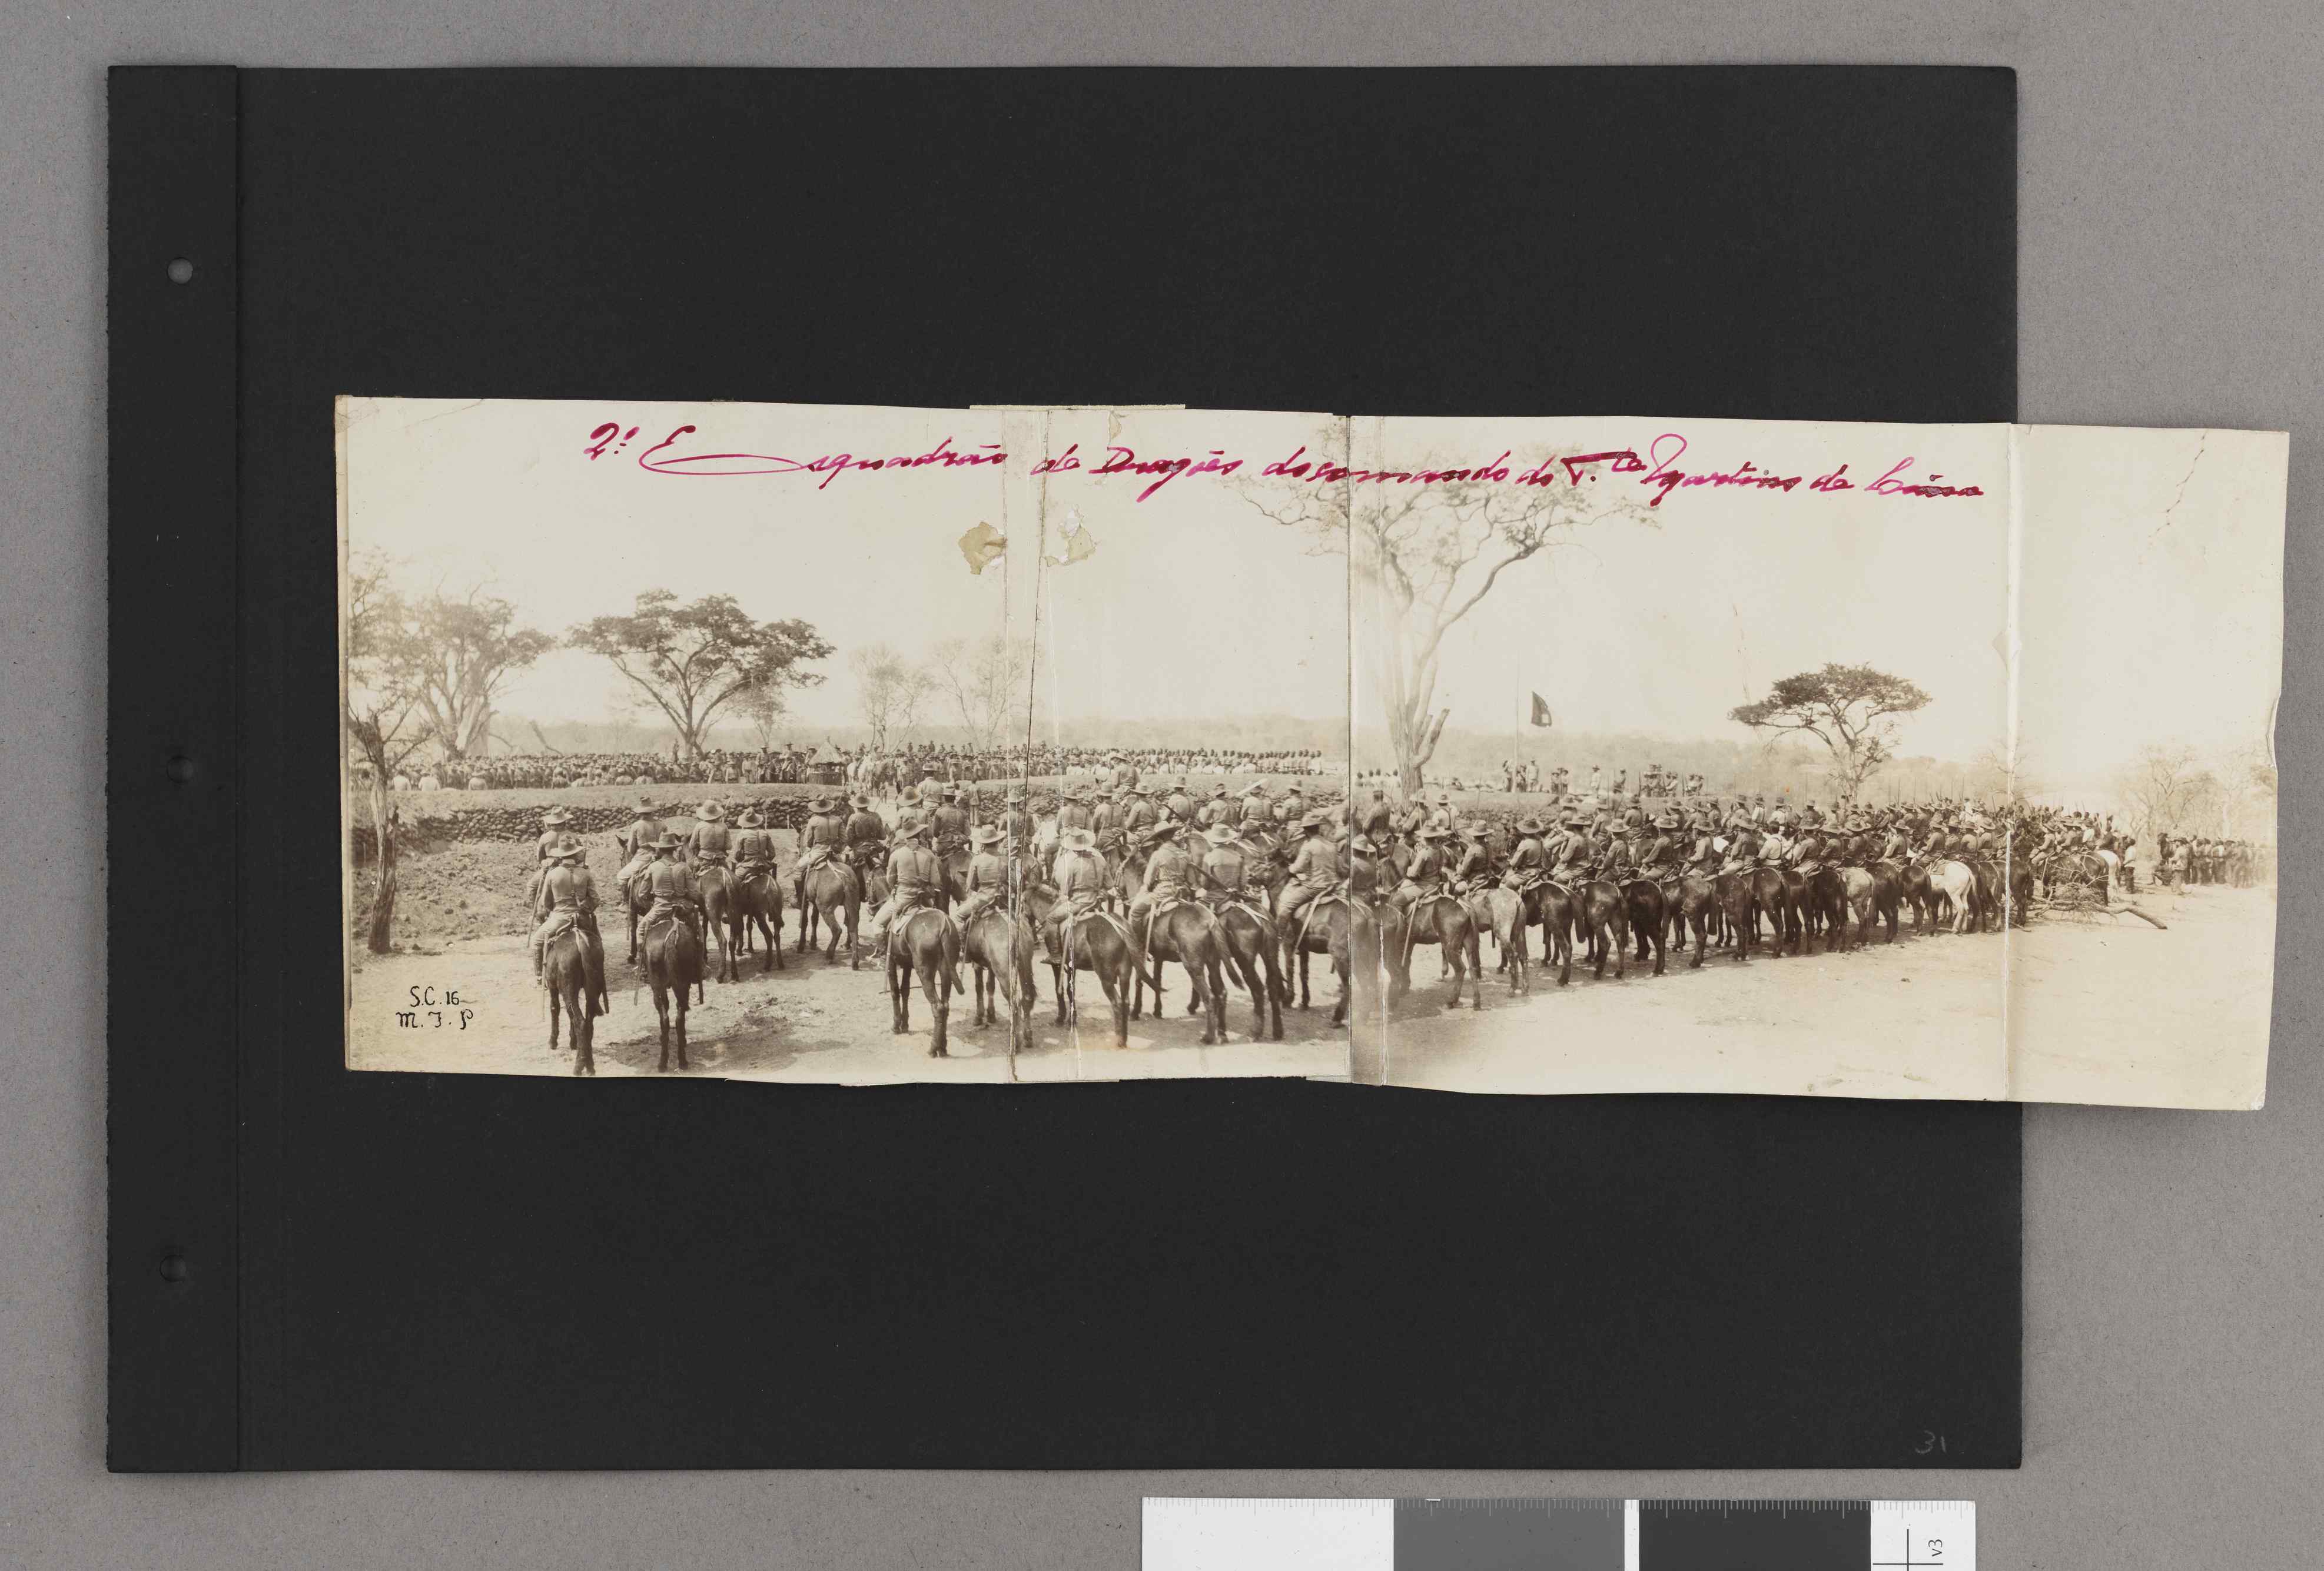 2º Esquadrão de Dragões do comando do T.te Martins de Lima
S.C. 16
M. F. P
31
v3